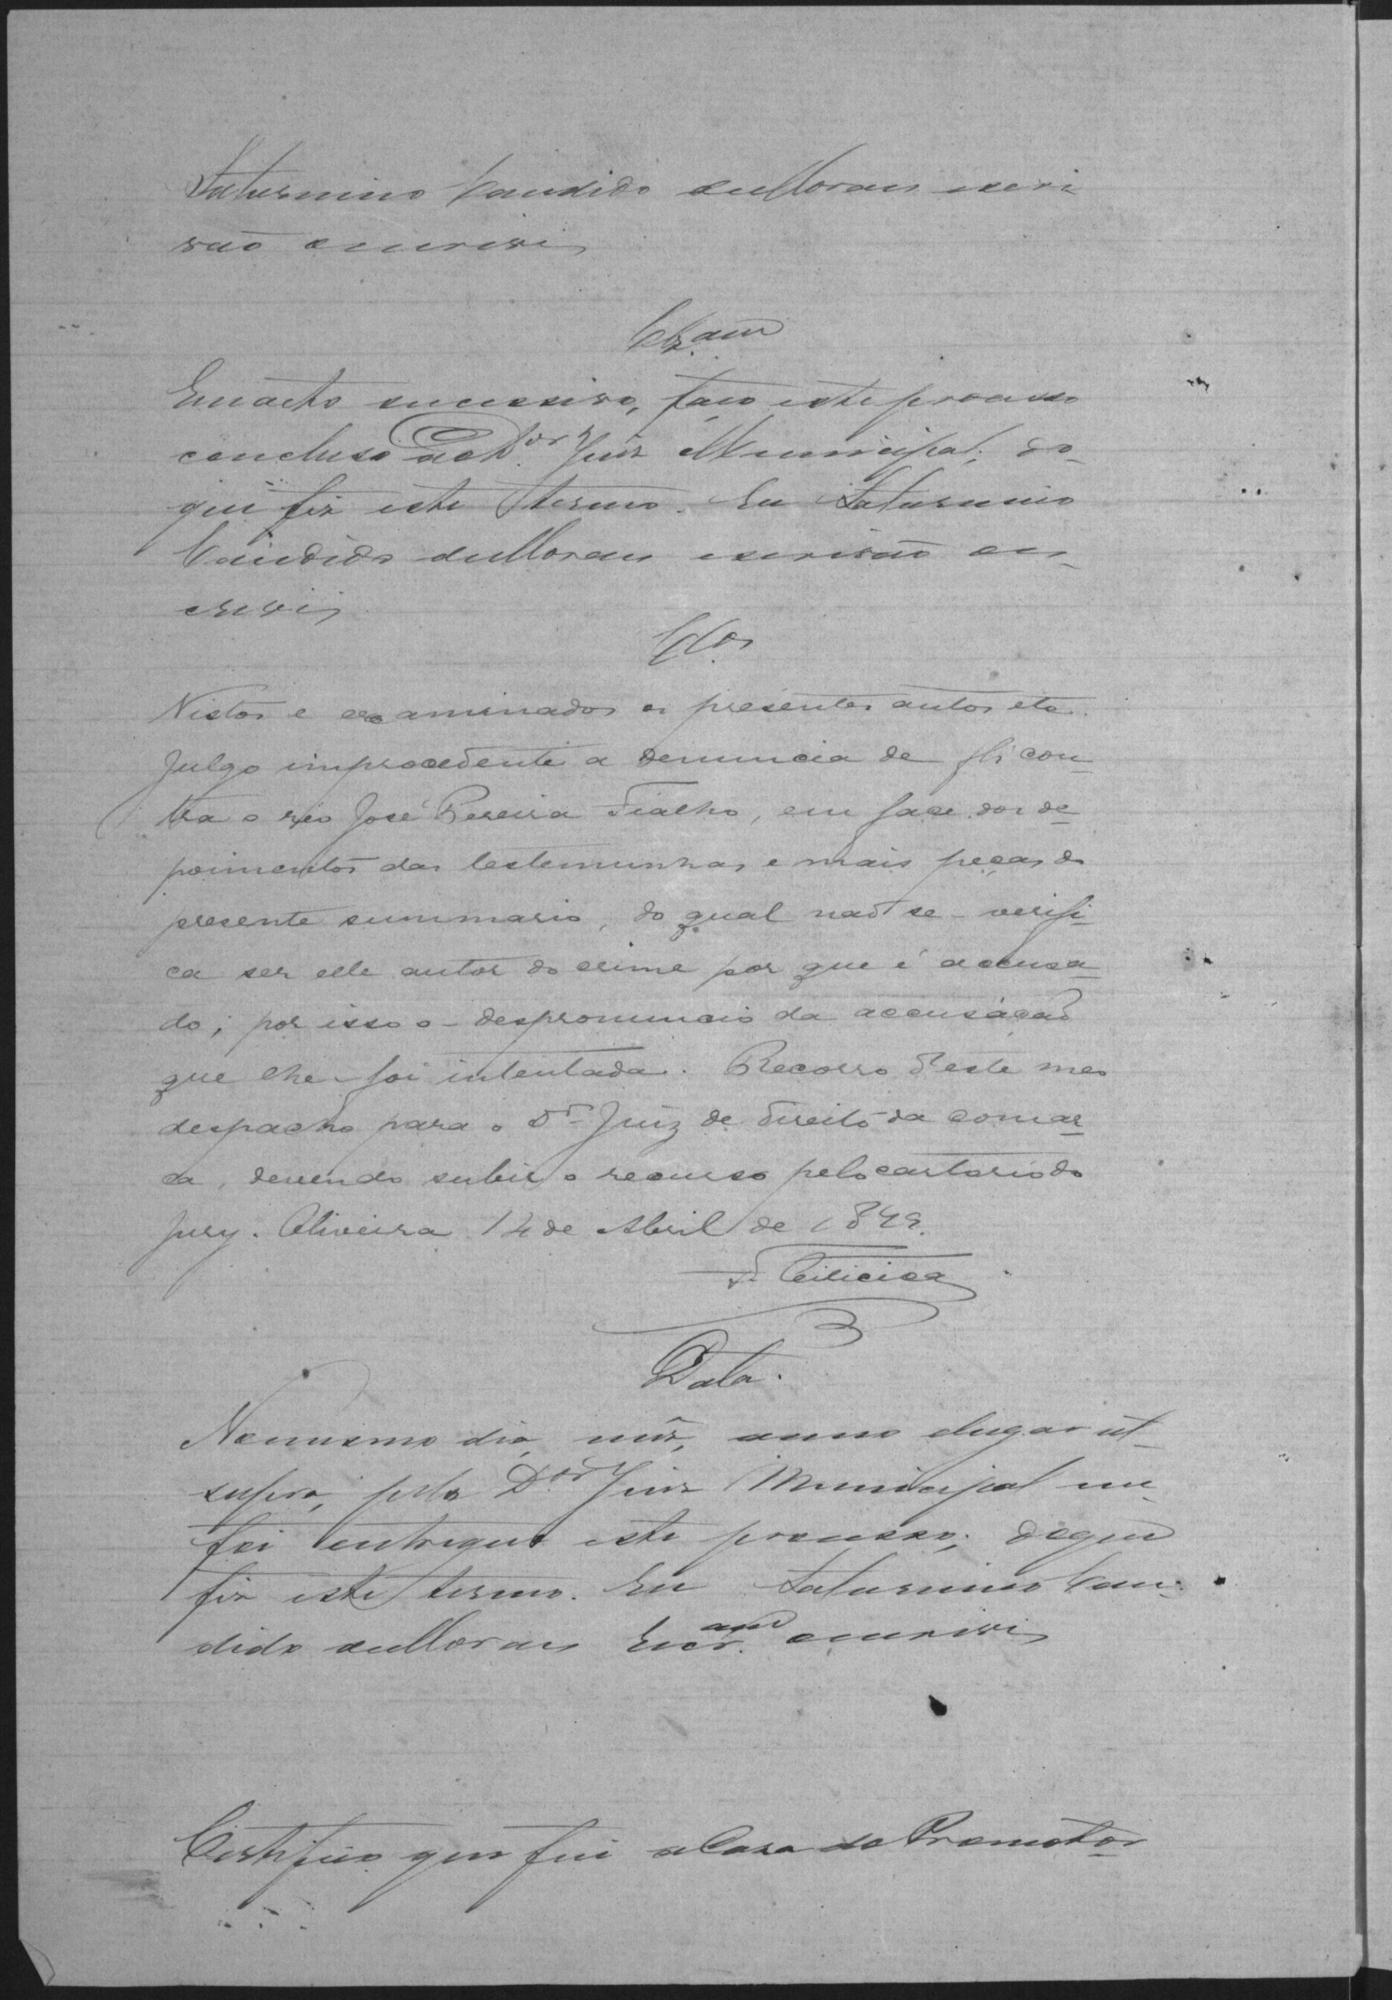 Saturnino Candido de Moraes escri
vão o escrevi
Clz.am
Em acto successivo, faço este processo
concluso ao D.or Juiz Municipal; do
que fiz este termo. Eu Saturnino
Candido de Moraes escrivão es-
crevi
Cl.os
Vistos e examinados os presentes autos etc.
Julgo improcedente a denuncia de fls con-
tra o réo José Pereira Fialho, em face dos de-
poimentos das testemunhas e mais peças do
presente summario, do qual não se verifi-
ca ser elle autor do crime por que é accusa-
do; por isso o despronuncio da accusação
que lhe foi intentada. Recorro d'este meo
despacho para o Dr Juiz de direito da comar-
ca, devendo subir o recurso pelo cartorio do
Jury. Oliveira 14 de Abril de
Data.
No mesmo dia, mês, anno e lugar ut-
supra, pelo D.or Juiz Municipal me
foi entregue este processo; do que
fiz este termo. Eu Saturnino Can-
dido de Moraes Escr.am o escrevi
Certifico que fui a Casa do Promotor